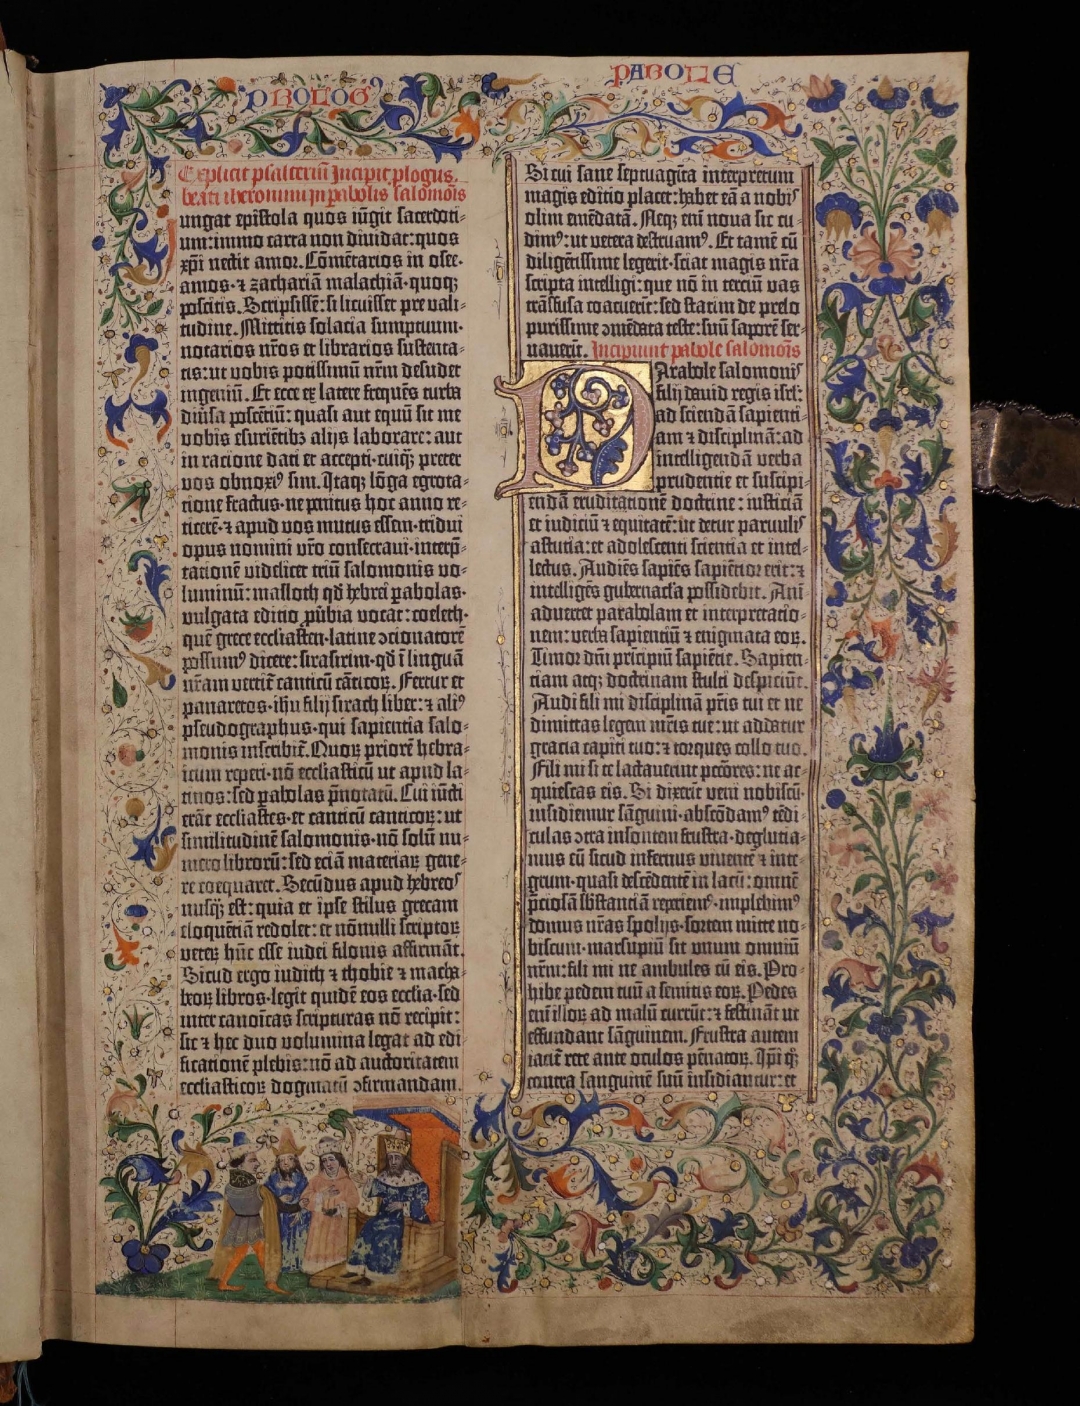 PROLOG⁹
PAROLE
Explicit psalteriū Incipit ꝓlogus
beati iheronimi in ꝑabolis salomōis
ungat epistola quos iūgit sacerdoti-
um: immo carta non diuidat: quos
xp̄i nectit amor. Cōmētarios in osee.
amos. ⁊ zachariā malachiā. quoqꝫ
poscitis. Scripsissē: si licuisset pre vali-
tudine. Mittitis solacia sumptuum.
notarios nr̄os et librarios sustenta-
tis: ut vobis potissimū nr̄m desudet
ingeniū. Et ecce ex latere frequēs turba
diūsa poscētiū: quasi aut equū sit me
vobis esurientibꝫ alijs laborare: aut
in racione dati et accepti. cuiqꝫ preter
vos obnoxi⁹ sim. Itaqꝫ lōga egrota-
tione fractus. ne penitus hoc anno re-
ticerē. ⁊ apud vos mutus essem. tridui
opus nomini vr̄o consecraui. interp̄-
tationē videlicet triū salomonis vo-
luminū: masloth qd̄ hebrei ꝑabolas.
vulgata editio ꝓūbia vocat: coeleth.
quē grece ecclesiasten. latine ↄcionatorē
possum⁹ dicere: sirasirim. qd̄ ī linguā
nr̄am vertit̄ canticū cāticoꝝ. Fertur et
panaretos. ihū filij sirach liber: ⁊ ali⁹
pseudographus. qui sapientia salo-
monis inscribit̄. Quoꝝ priorē hebra-
icum reperi. nō ecclesiasticū ut apud la-
tinos: sed ꝑabolas p̄notatū. Cui iūcti
erāt ecclesiastes. et canticū canticoꝝ: ut
similitudinē salomonis. nō solū nu-
mero librorū: sed eciā materiaꝝ gene-
re coequaret. Secūdus apud hebreos
nusqꝫ est: quia et ipse stilus grecam
eloquētiā redolet: et nōnulli scriptoꝝ
veteꝝ hūc esse iudei filonis affirmāt.
Sicud ergo iudith ⁊ thobie ⁊ macha-
beoꝝ libros. legit quidē eos ecclia. sed
inter canoīcas scripturas nō recipit:
sic ⁊ hec duo volumina legat ad edi-
ficationē plebis: nō ad auctoritatem
ecclesiasticoꝝ dogmatū ↄfirmandam.
Si cui sane septuaginta interpretum
magis editio placet: habet eā a nobis
olim emēdatā. Neqꝫ enī nova sic cu-
dim⁹: ut vetera destruam⁹. Et tamē cū
diligētissime legerit. sciat magis nr̄a
scripta intelligi: que nō in terciū vas
trāsfusa coacuerūt: sed statim de prelo
purissime ↄmēdata teste: suū saporē ser-
uauerūt. Incipiunt ꝑabole salomōis
Parabole salomonis
filij dauid regis isrl̄:
ad sciendā sapienti-
am ⁊ disciplinā: ad
intelligendā verba
prudentie et suscipi-
endā eruditationē doctrine: iusticiā
et iudiciū ⁊ equitatē: ut detur paruulis
astutia: et adolescenti scientia et intel-
lectus. Audiēs sapiēs sapiētior erit: ⁊
intelligēs gubernacl̄a possidebit. Ani-
aduertet parabolam et interpretatio-
nem: verba sapientiū ⁊ enigmata eoꝝ.
Timor dn̄i prīcipiū sapiētie. Sapien-
ciam atqꝫ doctrinam stulti despiciūt.
Audi fili mi disciplinā pr̄is tui et ne
dimittas legem mr̄is tue: ut addatur
gracia capiti tuo: ⁊ torques collo tuo.
Fili mi si te lactauerint pccōres: ne ac-
quiescas eis. Si dixerit veni nobiscū.
insidiemur sāguini. abscōdam⁹ tēdi-
culas ↄtra insontem frustra. deglutia-
mus eū sicud infernus viuentē ⁊ inte-
grum. quasi descēdentē in lacū: omnē
p̄ciosā sb̄stanciā reperiem⁹. implebim⁹
domus nr̄as spolijs. sortem mitte no-
biscum. marsupiū sit vnum omniū
nr̄m: fili mi ne ambules cū eis. Pro-
hibe pedem tuū a semitis eoꝝ. Pedes
enī illoꝝ ad malū currūt: ⁊ festināt ut
effundant sāguinem. Frustra autem
iacit̄ rete ante oculos pēnatoꝝ. Ip̄i qꝫ
contra sanguinē suū insidiantur: et